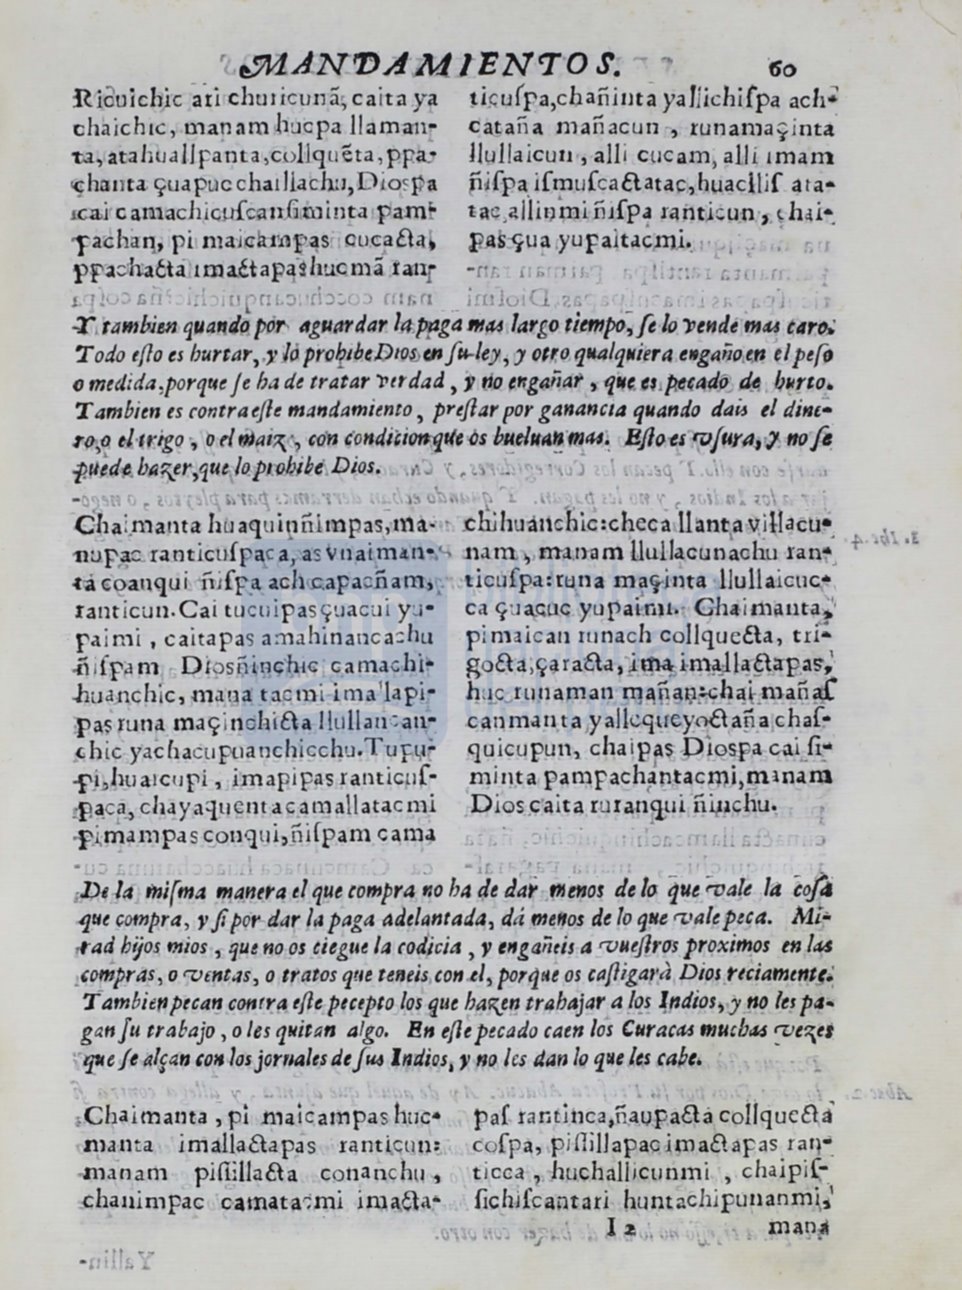 MANDAMIENTOS. 60
Ricuichic ari churicunã, caita ya
chaichic, manam hucpa llaman-
ta, atahuallpanta, collquẽta, ppa-
chanta çuapucchaillachu, Diospa
cai camachicuscansiminta pam-
pachan, pi maicampas cucacta,
ppachacta imactapas hucmã ran-
ticuspa, chañinta yallichispa ach-
cataña mañacun, runamaçinta
llullaicun, alli cucam, alli imam
ñispa ismuscactatac, huacllis ata-
tac, allinmi ñispa ranticun, chai-
pas çua yupaitacmi.
Y tambien quando por aguardar la paga mas largo tiempo, se lo vende mas caro.
Todo esto es hurtar, y lo prohibe Dios en su ley, y otro qualquiera engaño en el peso
o medida, porque se ha de tratar verdad, y no engañar, que es pecado de hurto.
Tambien es contra este mandamiento, prestar por ganancia quando dais el dine-
ro, o el trigo, o el maiz, con condicion que os bueluan mas. Esto es vsura, y no se
puede hazer, que lo prohibe Dios.
Chaimanta huaquinñimpas, ma-
nupac ranticuspaca, as vnaiman-
ta coanqui ñispa achcapacñam,
ranticun. Cai tucuipas çuacui yu-
paimi, caitapas amahinancachu
ñispam Diosñinchic camachi-
huanchic, mana tacmi ima lapi-
pas runa maçinchicta llullancan-
chic yachacupuanchicchu. Tupu-
pi, huaicupi, imapipas ranticus-
paca, chayaquentacamallatacmi
pimampas conqui, ñispam cama
chihuanchic: checallanta villacu-
nam, manam llullacunachu ran-
ticuspa: runa maçinta llullaicuc-
ca çuacuc yupaimi. Chaimanta,
pimaican runach collquecta, tri-
gocta, çaracta, ima imallactapas,
huc runaman mañan: chai mañas
canmanta yallequeyoctaña chas-
quicupun, chaipas Diospa cai si-
minta pampachantacmi, manam
Dios caita ruranqui ñinchu.
De la misma manera el que compra no ha de dar menos de lo que vale la cosa
que compra, y si por dar la paga adelantada, dá menos de lo que vale peca. Mi-
rad hijos mios, que no os ciegue la codicia, y engañeis a vuestros proximos en las
compras, o ventas, o tratos que teneis con el, porque os castigarà Dios reciamente.
Tambien pecan contra este pecepto los que hazen trabajar a los Indios, y no les pa-
gan su trabajo, o les quitan algo. En este pecado caen los Curacas muchas vezes
que se alçan con los jornales de sus Indios, y no les dan lo que les cabe.
Chaimanta, pi maicampas huc-
manta imallactapas ranticun:
manam pisillacta conanchu,
chanimpac camatacmi imacta-
pas rantinca, ñaupacta collquecta
cospa, pisillapac imactapas ran-
ticca, huchallicunmi, chaipis-
sichiscantari huntachipunanmi,
I 2 mana